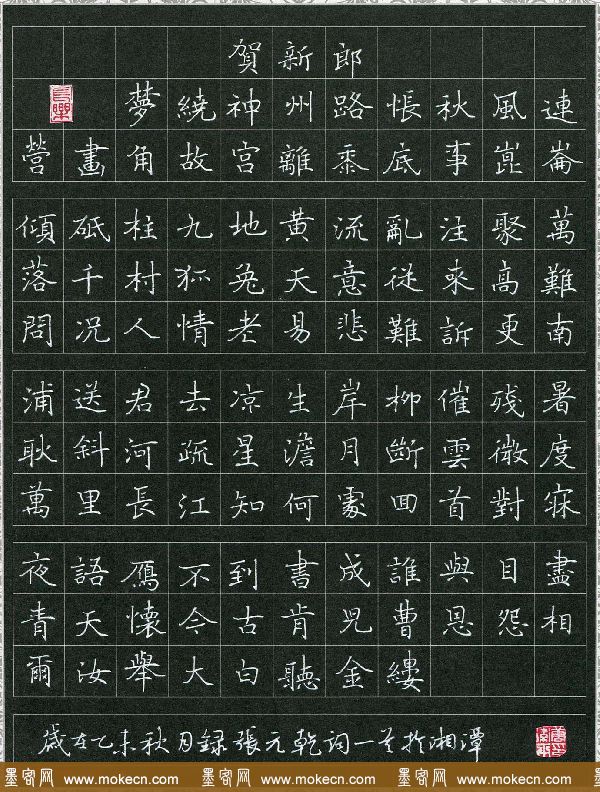 賀新郎
夢繞神州路悵秋風連
營畫角故宮離黍底事崑崙
傾砥柱九地黄流亂注聚萬
落千村狐兔天意從來高難
問況人情老易悲難訴更南
浦送君去凉生岸柳催殘暑
耿斜河疏星澹月斷雲微度
萬里長江知何處回首對寐
夜語鴈不到書成誰與目盡
青天懷今古肯兒曹恩怨相
爾汝舉大白聽金縷
歲在乙未秋月録張元乾詞一首於湘潭
墨客网 www.mokecn.com 墨客网 www.mokecn.com 墨客网 www.mokecn.com